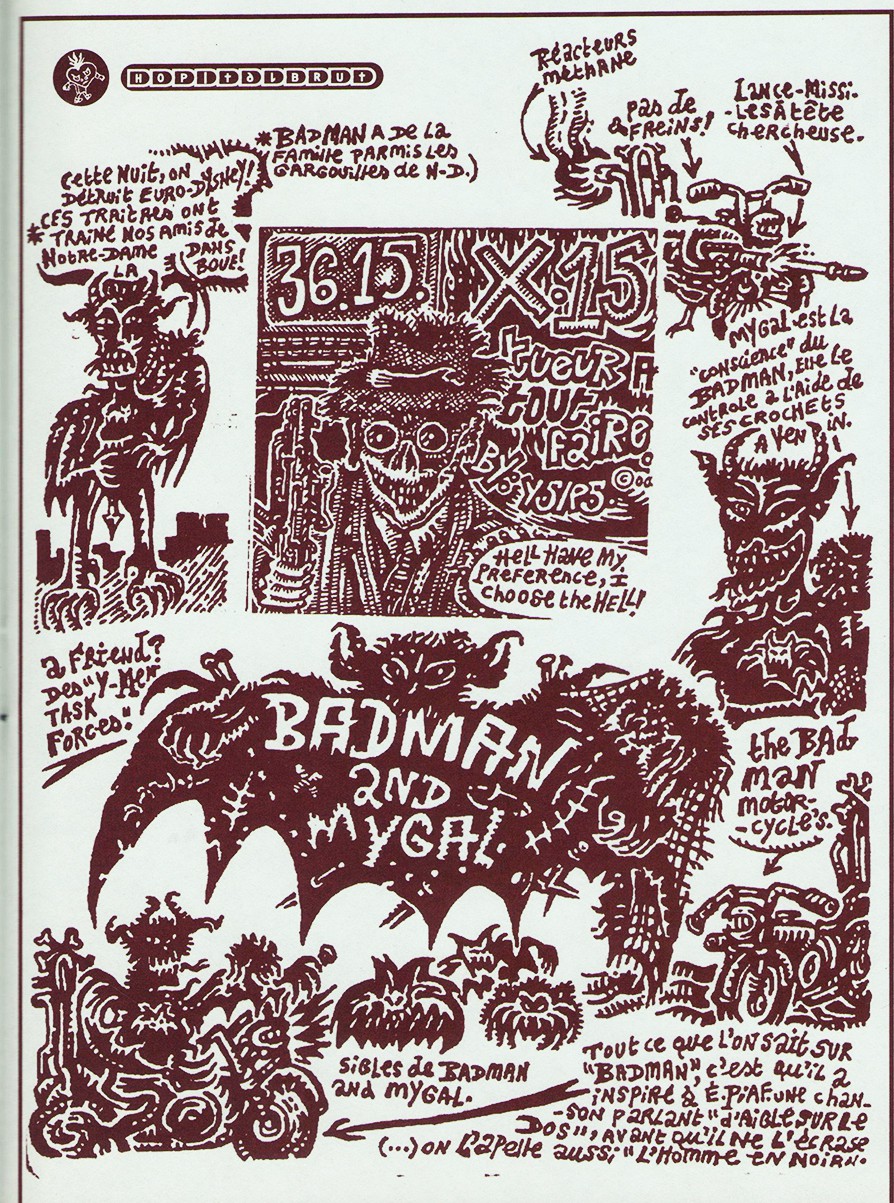 HOPItàLBRUt
Réacteurs
méthane
pas de
FREINS!
Lance-Missi-
-Les À tête
chercheuse.
*BADMAN A De La
Famille PARMIS Les
GARGOUILLes de N-D.)
cette Nuit, on
Détruit EURO-DYSNEY!
CES TRAitRes ONt
* TRAiNé NOS Amis de
NOtRe-DAMe DANS
LA BOUE!
36.15.
X.15
tueur A
tout
faire
BY
HeLL Have My
PReFeReNce, I
choose the HELL!
MYGAL est La
"conscience" du
BADMAN, Elle Le
contrôle à L'Aide de
SES CROCHETS
A VENIN.
a FRiend?
Des "Y-Men
TASK
FORCES!"
BADMAN
and
MYGAL
the BAD
MAN
motor-
-cycle's.
sibles de BADMAN
and MYGAL.
Tout ce que L'on sait sur
"BADMAN", c'est qu'il a
inspiré à É.PiAF une chan-
-son parlant "d'Aigle sur Le
DOS", AVANt qu'il Ne L'écrase
(...) on L'apelle aussi "L'Homme en Noir".